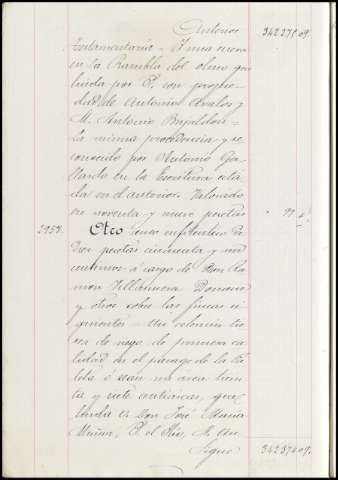 Anterior 342271 09.
Testamentaria. Y una
en la Rambla del olmo que
linda por P. con propie-
dad de Antonio Avalos y
M. Antonio
la misma procedencia y re-
conocido por Antonio Ga-
llardo en la Escritura cita-
da en el anterior. Valorado
en noventa y nueve pesetas " 99 "
2958. Otro censo enfitéutico de
tres pesetas cincuenta y un
centimos á cargo de Don Ra-
mon Villanueva Donoso
y otros sobre las fincas si-
guientes = Un celemin
de riego de primera ca-
lidad en el parage de la
ó sean un área trein-
ta y siete centiáreas, que
linda L. Don José Maria
Muñoz, P. el Rio, M.
Sigue 342370 09.